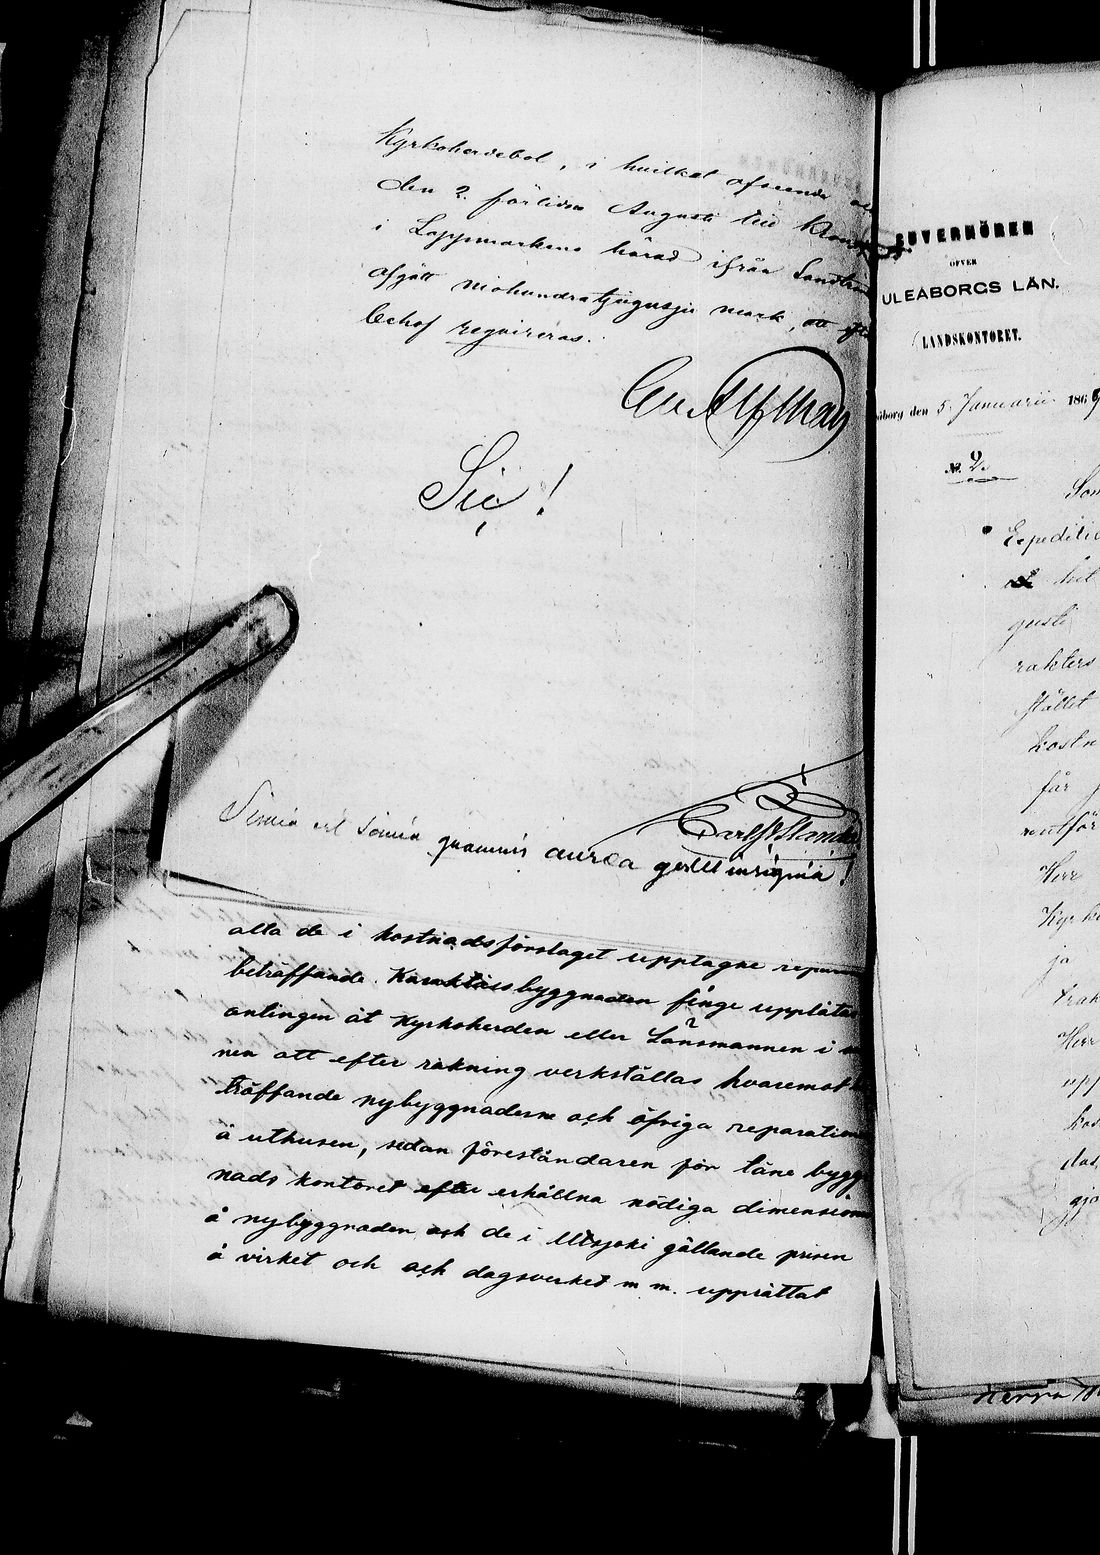 Kyrkoherdebol, i hvilket afseende
den 2. förlidne Augusti till Krono
i Lappmarkens härad ifrån Landträn
afgått niohundratjugusju mark, att efter
behof requireras.
Sic!
Simia est simia quamvis aurea gestet insignia!
alla de i kostnadsförslaget upptagne repara
beträffande Karaktersbyggnaden finge upplåtas
antingen åt Kyrkoherden eller Länsmannen i
nen att efter räkning verkställas hvaremot
träffande nybyggnaderne och öfriga reparation
å uthusen, sedan föreståndaren för läne bygg
nads kontoret efter erhållna nödiga dimensioner
å nybyggnaden och de i Utsjoki gällande prisen
å virket och och dagsverket m m. upprättat
GUVERNÖREN
ÖFVER
ULEÅBORGS LÄN.
LANDSKONTORET.
Uleåborg den 5 Januarii 186
No 2.
Som
Expeditio
gusti
rakters
stället
kostn
för
Herr
Kyrko
ja
trak
Herr
upp
kos